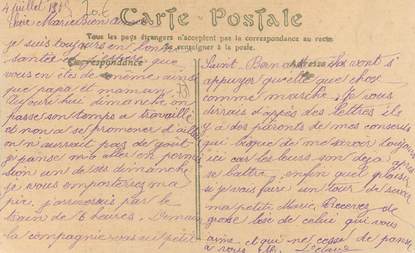 4 juillet 191
Chère Marie bien
Carte Postale
Tous les pays étrangers n'acceptent pas la correspondance au recto
se renseigner à la poste.
je suis toujours en bonne
santé
Correspondance
que
vous en êtes de même ainsi
que papa et maman
Aujourd'hui dimanche on
passe son temps a travaillé
et non a se promener d'ailleurs
on n'aurait pas de goût
je pense m'en aller en permi
sion un de ces dimanche
je vous emporterais ma
j'arriverais par le
train de 6 heures. Demain
la compagnie vas au petit
Saint
Adresse
ils vont s'
appuyer quelque chose
comme marche. je vous
dirais d'après des lettres il
y à des parents de mes
qui de me savoir toujours
ici car les leurs son déjà
se battre, enfin quel plaisir
si je vais faire un tour de savoir
ma petite Marie. Recevez de
grosse bise de celui qui vous
aime et qui ne cesse de penser
a vous